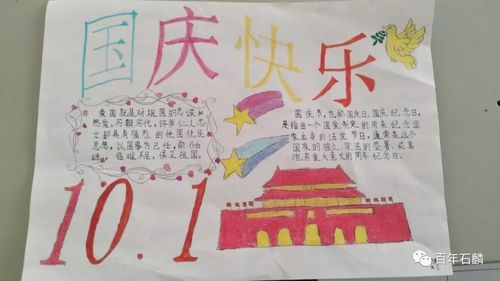 国庆快乐
爱国就是对祖国的忠诚和
热爱。历朝历代,许多仁人志
士都具有强烈的忧国忧民
思想,以国事为己任,前仆后
继,临难不屈,保卫祖国,
国庆节,也称国庆日、国庆纪念日,
是指由一个国家制定的用来纪念国
家本身的法定节日,通常是这个
国家的独立、宪法的签署、或其
他有重大意义的周年纪念日。
10.1
百年石麟